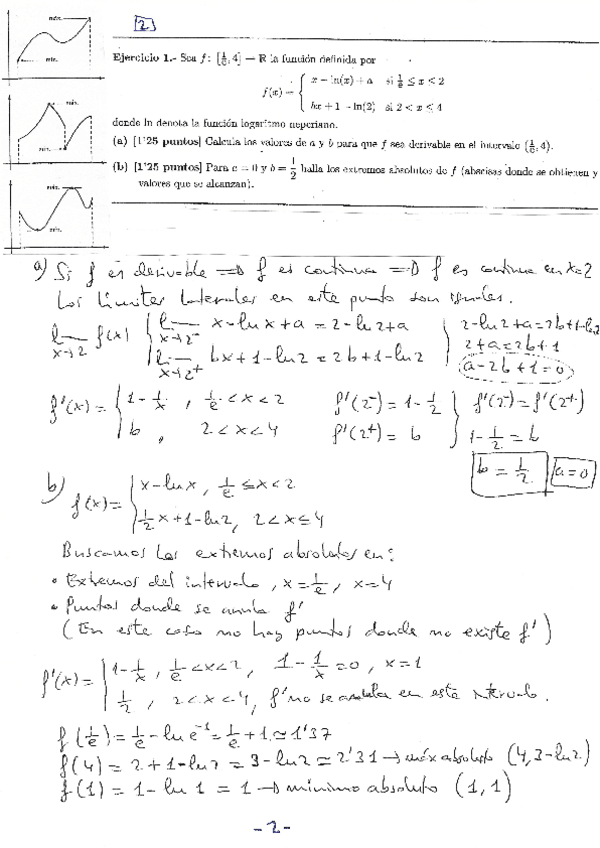 2
máx.
mín.
máx.
mín.
máx.
mín.
Ejercicio 1.- Sea f: [1/e, 4] → R la función definida por
f(x) = { x − ln(x) + a si 1/e ≤ x ≤ 2
bx + 1 − ln(2) si 2 < x ≤ 4
donde ln denota la función logaritmo neperiano.
(a) [1'25 puntos] Calcula los valores de a y b para que f sea derivable en el intervalo (1/e, 4).
(b) [1'25 puntos] Para a = 0 y b = 1/2 halla los extremos absolutos de f (abscisas donde se obtienen y
valores que se alcanzan).
a) Si f es derivable ⇒ f es continua ⇒ f es continua en x=2
Los límites laterales en este punto son iguales.
lim x→2 f(x) { lim x→2⁻ x − ln x + a = 2 − ln 2 + a
lim x→2⁺ bx + 1 − ln 2 = 2b + 1 − ln 2 } 2 − ln 2 + a = 2b + 1 − ln 2
2 + a = 2b + 1
a − 2b + 1 = 0
f'(x) = { 1 − 1/x , 1/e < x < 2 f'(2⁻) = 1 − 1/2 } f'(2⁻) = f'(2⁺)
b , 2 < x < 4 f'(2⁺) = b } 1 − 1/2 = b
b = 1/2 a = 0
b) f(x) = { x − ln x , 1/e ≤ x < 2
1/2 x + 1 − ln 2 , 2 < x ≤ 4
Buscamos los extremos absolutos en:
• Extremos del intervalo , x = 1/e , x = 4
• Puntos donde se anula f'
(En este caso no hay puntos donde no existe f')
f'(x) = { 1 − 1/x , 1/e < x < 2 , 1 − 1/x = 0 , x = 1
1/2 , 2 < x < 4 , f' no se anula en este intervalo.
f(1/e) = 1/e − ln e⁻¹ = 1/e + 1 ≃ 1'37
f(4) = 2 + 1 − ln 2 = 3 − ln 2 ≃ 2'31 → máx absoluto (4, 3 − ln 2)
f(1) = 1 − ln 1 = 1 → mínimo absoluto (1, 1)
- 2 -